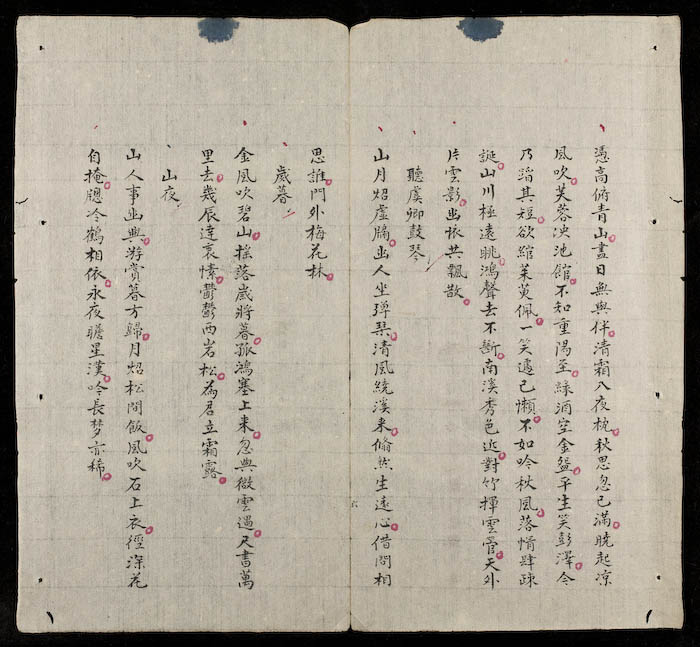 憑高俯青山盡日無與伴清霜入夜枕秋思忽已滿曉起凉
風吹芙蓉泱池館不知重陽至綠酒空金盌平生笑彭澤令
乃蹈其短欲綰茱萸佩一笑遽已懶不如吟秋風落帽肆疎
誕山川極遠眺鴻聲去不斷南溪秀色近對竹揮雲管天外
片雲影幽依共飄散
聽虞卿鼓琴
山月炤虛牖幽人坐彈琴清風繞溪来翛然生遠心借問相
思誰門外梅花林
歲暮
金風吹碧山搖落歲將暮孤鴻塞上来忽與微雲遇尺書萬
里去幾辰達衷愫鬱鬱西岩松為君立霜露
山夜
山人事幽興游賞暮方歸月炤松間飯風吹石上衣徑深花
自掩牕冷鶴相依永夜瞻星漢吟長梦亦稀